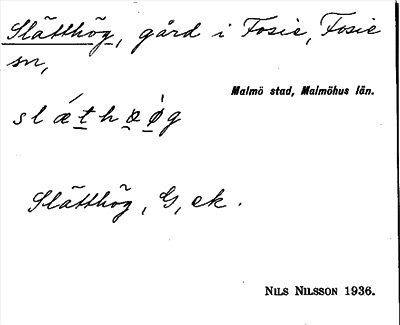 Slätthög, gård i Fosie, Fosie
sn,
Malmö stad, Malmöhus län.
slǽṯho̱ø̱̀g
Slätthög, G, ek.
NILS NILSSON 1936.